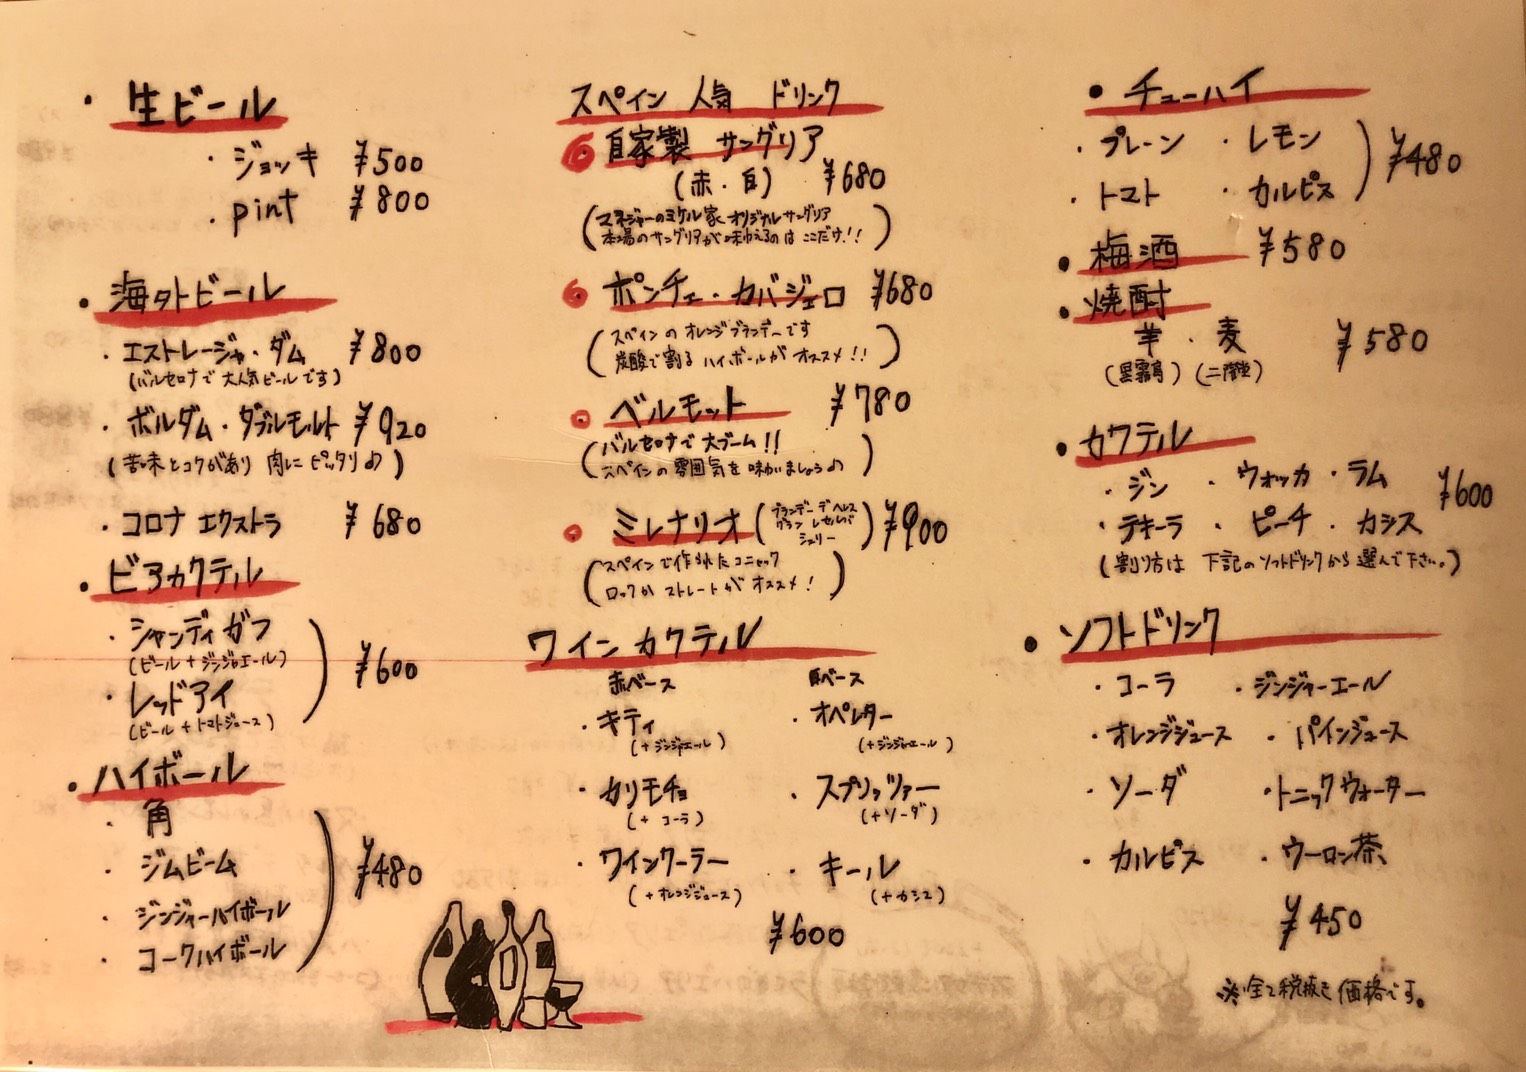 ・生ビール
・ジョッキ ¥500
・pint ¥800
・海外ビール
・エストレージャ・ダム ¥800
(バルセロナで大人気ビールです)
・ボルダム・ダブルモルト ¥920
(苦味とコクがあり 肉に ピッタリ♪)
・コロナ エクストラ ¥680
・ビアカクテル
・シャンディ ガフ
(ビール+ジンジャエール)
・レッドアイ
(ビール+トマトジュース)
¥600
・ハイボール
・角
・ジムビーム
・ジンジャーハイボール
・コークハイボール
¥480
スペイン 人気 ドリンク
自家製 サングリア
(赤・白) ¥680
(マネジャーのミゲル家オリジナルサングリア
本場のサングリアが味わえるのは ここだけ!!)
ポンチェ・カバジェロ ¥680
(スペインの オレンジブランデーです
炭酸で割る ハイボールが オススメ!!)
ベルモット ¥780
(バルセロナで 大ブーム!!
スペインの 雰囲気を 味わいましょう♪)
ミレナリオ (ブランデー デ ヘレス
グラン レセルバ
シェリー) ¥900
(スペインで作られた コニャック
ロックか ストレートが オススメ!)
ワイン カクテル
赤ベース 白ベース
・キティ ・オペレーター
(+ジンジャエール) (+ジンジャエール)
・カリモチョ ・スプリッツァー
(+コーラ) (+ソーダ)
・ワインクーラー ・キール
(+オレンジジュース) (+カシス)
¥600
・チューハイ
・プレーン ・レモン
・トマト ・カルピス
¥480
・梅酒 ¥580
・焼酎
芋・麦 ¥580
(黒霧島) (二階堂)
・カクテル
・ジン ・ウォッカ ・ラム ¥600
・テキーラ ・ピーチ ・カシス
(割り方は 下記のソフトドリンクから 選んで下さい。)
・ソフトドリンク
・コーラ ・ジンジャーエール
・オレンジジュース ・パインジュース
・ソーダ ・トニックウォーター
・カルピス ・ウーロン茶
¥450
※全て税抜き価格です。